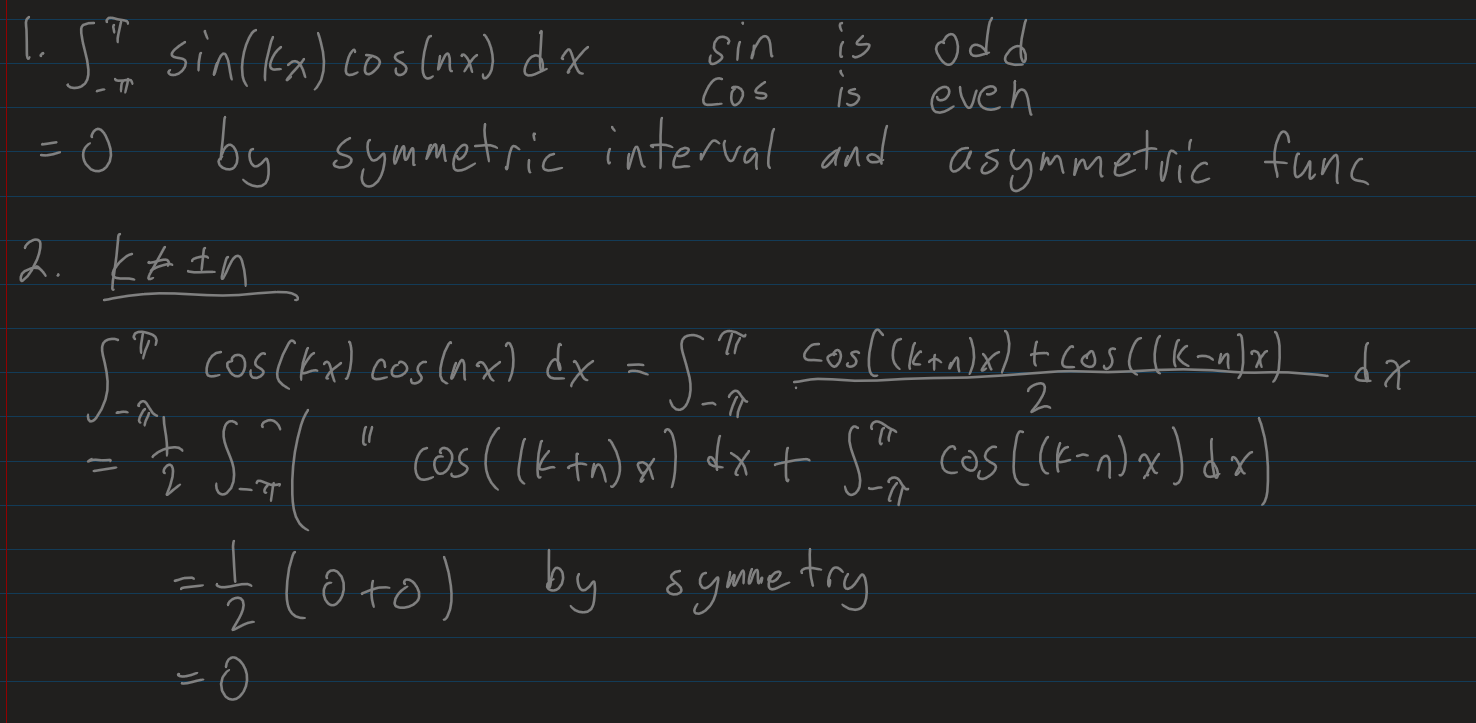 1. ∫_{-π}^{π} sin(kx) cos(nx) dx sin is odd
cos is even
= 0 by symmetric interval and asymmetric func
2. k ≠ ±n
∫_{-π}^{π} cos(kx) cos(nx) dx = ∫_{-π}^{π} (cos((k+n)x) + cos((k-n)x))/2 dx
= 1/2 ∫_{-π}^{π} ( " cos((k+n)x) dx + ∫_{-π}^{π} cos((k-n)x) dx )
= 1/2 (0+0) by symmetry
= 0